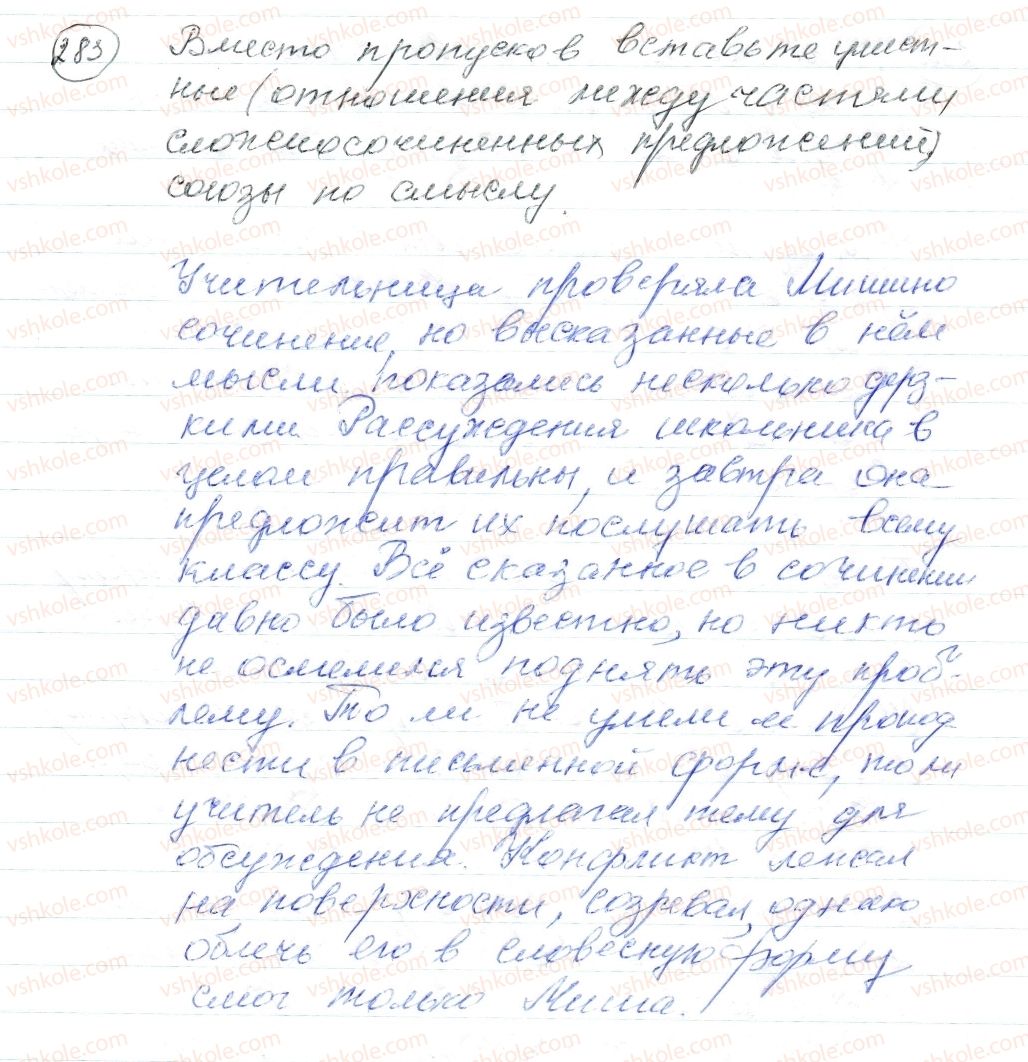 283 Вместо пропусков вставьте умест-
ные (отношения между частями
сложносочиненных предложений)
союзы по смыслу.
Учительница проверяла Мишино
сочинение, но высказанные в нём
мысли показались несколько дерз-
кими. Рассуждения школьника в
целом правильны, и завтра она
предложит их послушать всему
классу. Всё сказанное в сочинении
давно было известно, но никто
не осмелился поднять эту проб-
лему. То ли не умели и препод
нести в письменной форме, то ли
учитель не предлагал тему для
обсуждения. Конфликт лежал
на поверхности, созревал, однако
облечь его в словесную форму
смог только Миша.